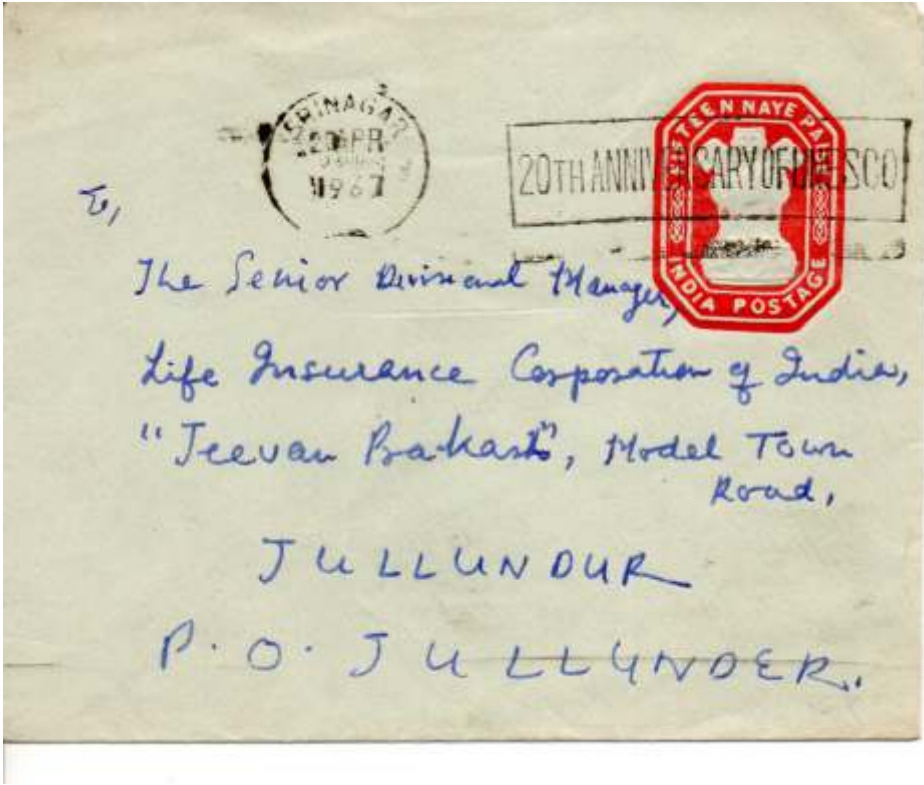 SRINAGAR
20 APR
1967
20TH ANNIVERSARY OF UNESCO
FIFTEEN NAYE PAISE
INDIA POSTAGE
To,
The Senior Divisional Manager,
Life Insurance Corporation of India,
"Jeevan Prakash", Model Town
Road,
JULLUNDUR
P.O. JULLUNDER.